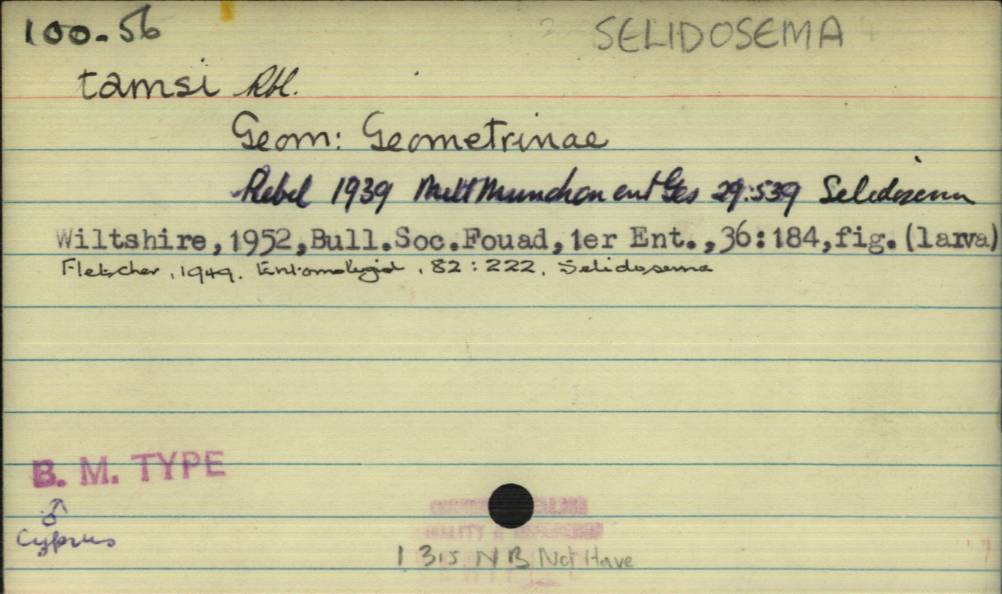 100.56 SELIDOSEMA
tamsi Rbl.
Geom: Geometrinae
Rebel 1939 Mitt Munchen ent Ges 29:539 Selidosema
Wiltshire,1952,Bull.Soc.Fouad,1er Ent.,36:184,fig.(larva)
Fletcher, 1949. Entomologist, 82:222. Selidosema
B. M. TYPE
♂
Cyprus
Not Have